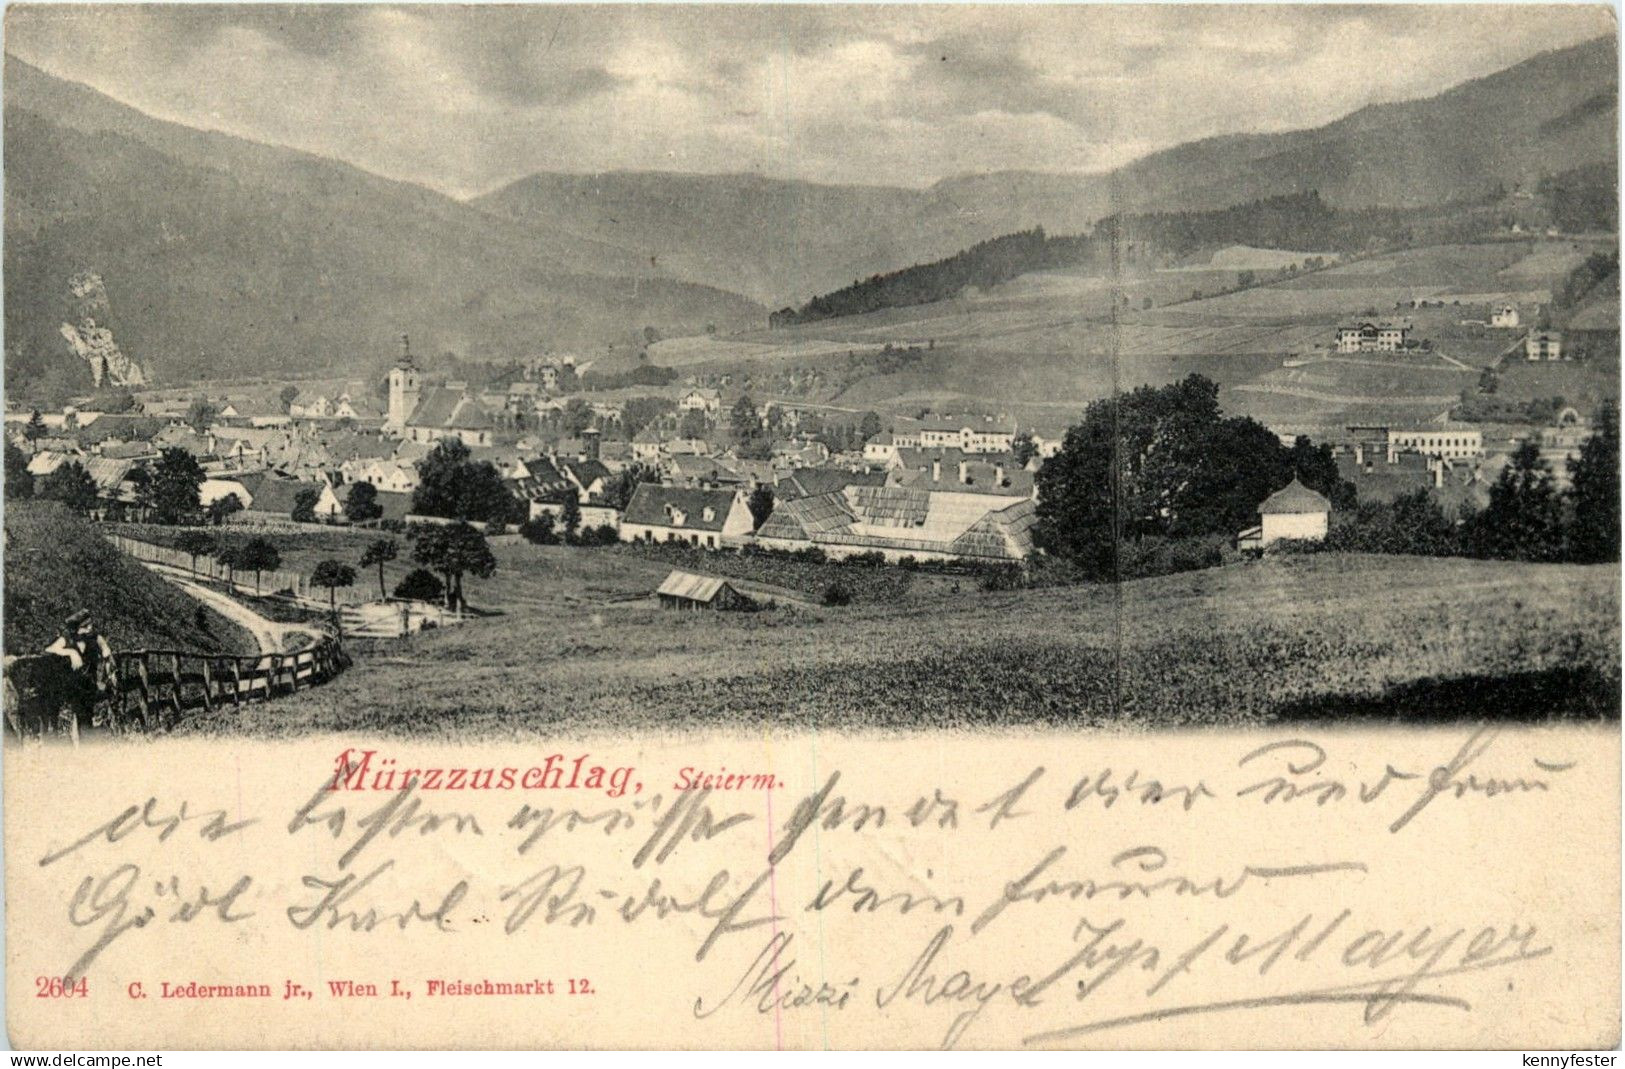 Mürzzuschlag, Steierm.
die besten grüsse sendet dier und frau
Gödl Karl Rudolf dein freund
Josef Mayer
Mizzi Mayer
2604 C. Ledermann jr., Wien I., Fleischmarkt 12.
delcampe.net
kennyfester